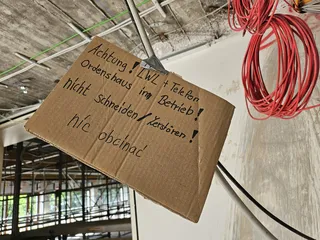 Achtung! LWL + Telefon
Ordenshaus im Betrieb!
nicht Schneiden/Zerstören!
nic obcinać